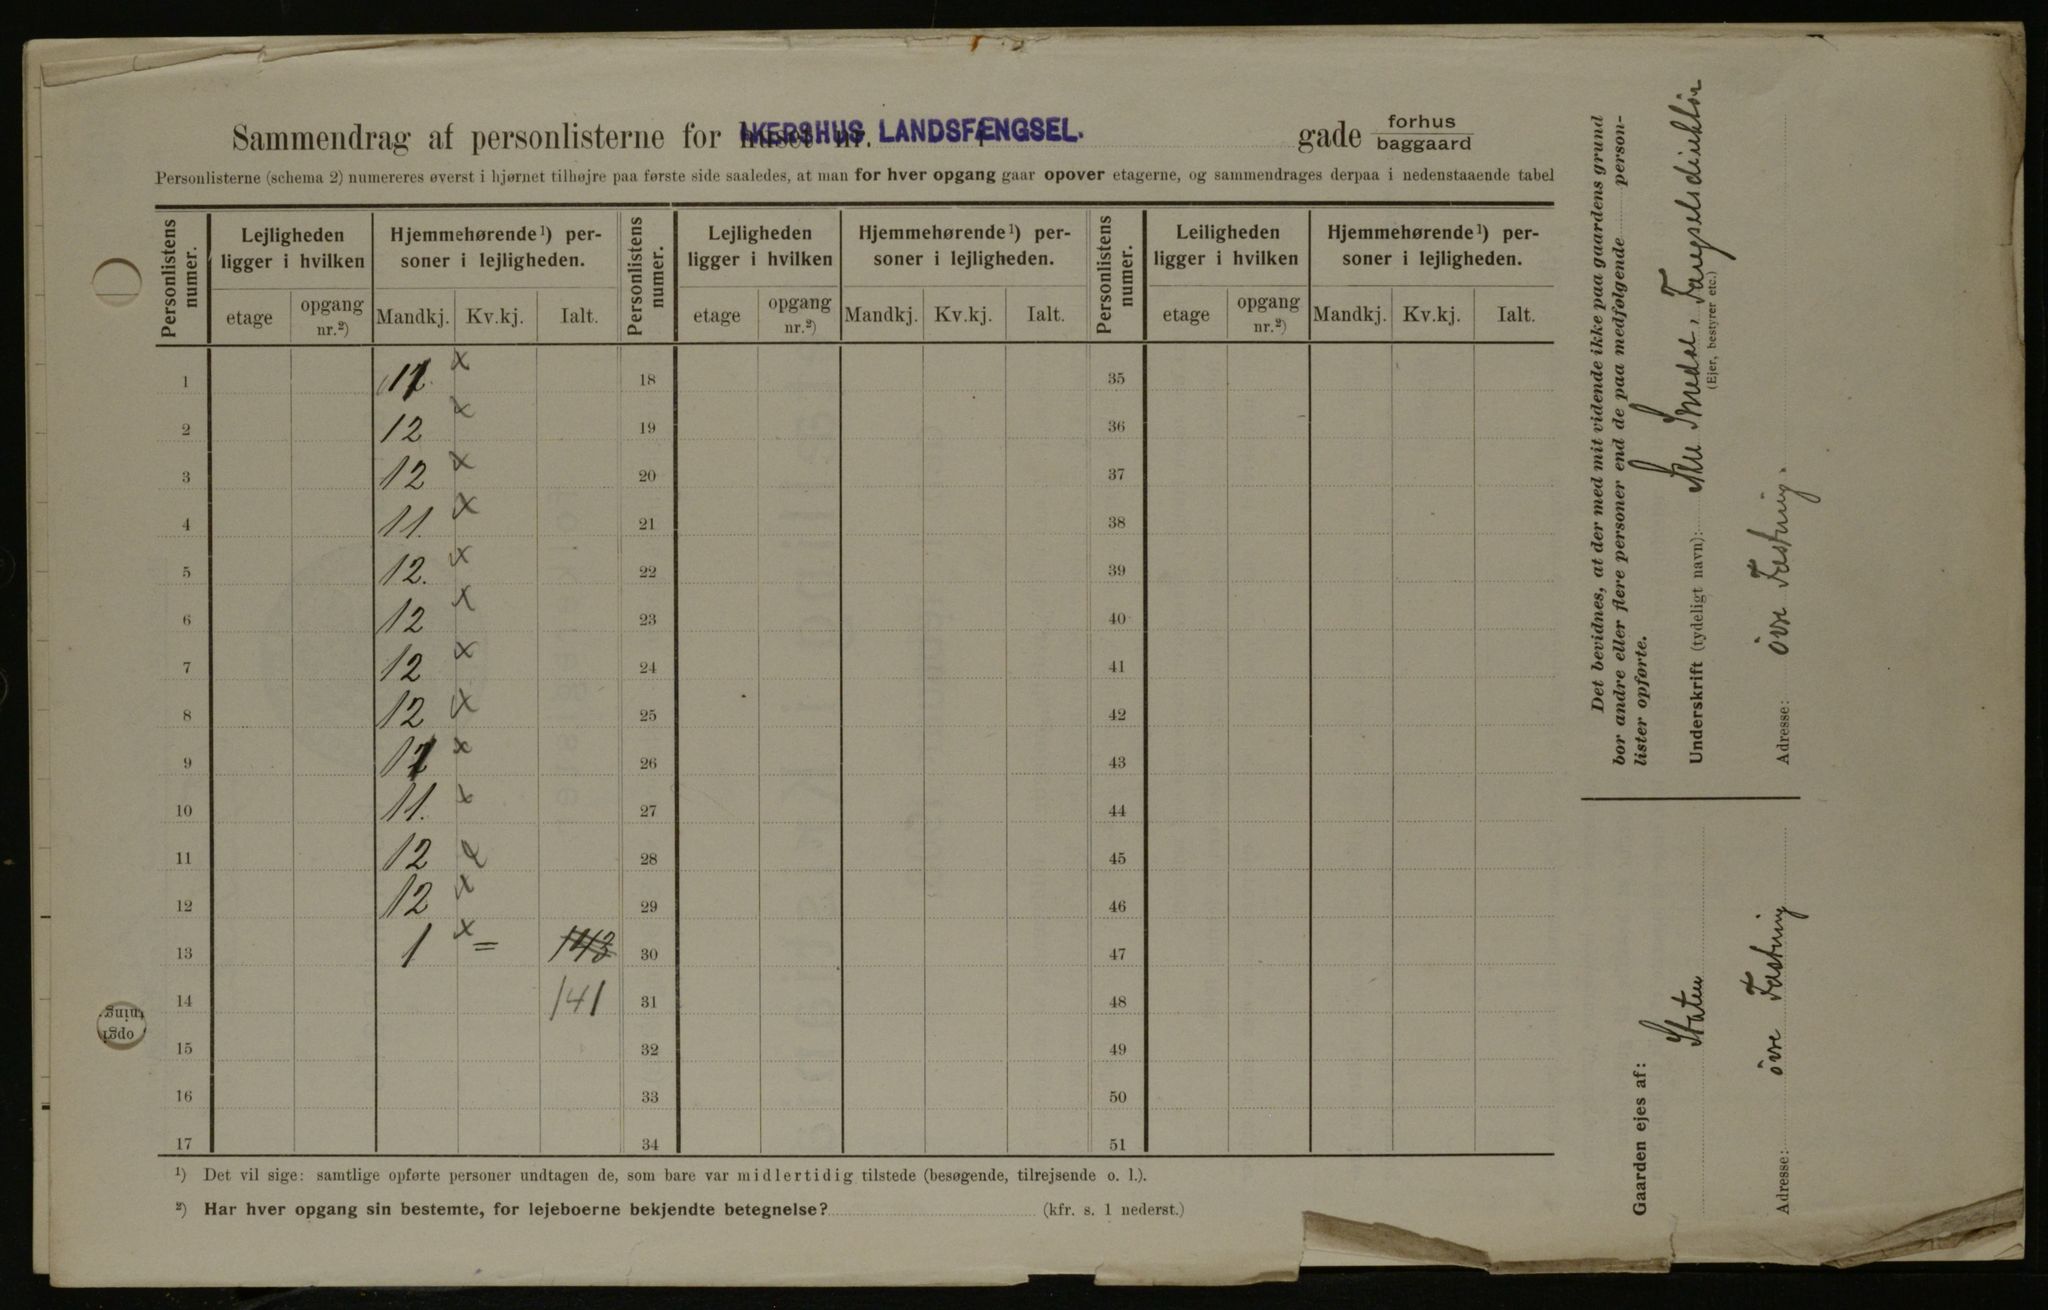 Sammendrag af personlisterne for huset nr. AKERSHUS LANDSFÆNGSEL. gade forhus baggaard
Personlisterne (schema 2) numereres øverst i hjørnet tilhøjre paa første side saaledes, at man for hver opgang gaar opover etagerne, og sammendrages derpaa i nedenstaaende tabel
Personlistens numer. Lejligheden ligger i hvilken Hjemmehørende¹) personer i lejligheden. Personlistens numer. Lejligheden ligger i hvilken Hjemmehørende¹) personer i lejligheden. Personlistens numer. Leiligheden ligger i hvilken Hjemmehørende¹) personer i lejligheden.
etage opgang nr.²) Mandkj. Kv.kj. Ialt. etage opgang nr.²) Mandkj. Kv.kj. Ialt. etage opgang nr.²) Mandkj. Kv.kj. Ialt.
1 11 x 18 35
2 12 x 19 36
3 12 x 20 37
4 11. x 21 38
5 12. x 22 39
6 12 x 23 40
7 12 x 24 41
8 12 x 25 42
9 11 x 26 43
10 11. x 27 44
11 12 x 28 45
12 12 x 29 46
13 1 x = 143 30 47
14 141 31 48
15 32 49
16 33 50
17 34 51
¹) Det vil sige: samtlige opførte personer undtagen de, som bare var midlertidig tilstede (besøgende, tilrejsende o. l.).
²) Har hver opgang sin bestemte, for lejeboerne bekjendte betegnelse? (kfr. s. 1 nederst.)
Det bevidnes, at der med mit vidende ikke paa gaardens grund
bor andre eller flere personer end de paa medfølgende person-
lister opførte.
Underskrift (tydeligt navn): Smedal, Fængselsdirektør
(Ejer, bestyrer etc.)
Adresse: övre Fæstning.
Gaarden ejes af:
Staten
Adresse: övre Fæstning